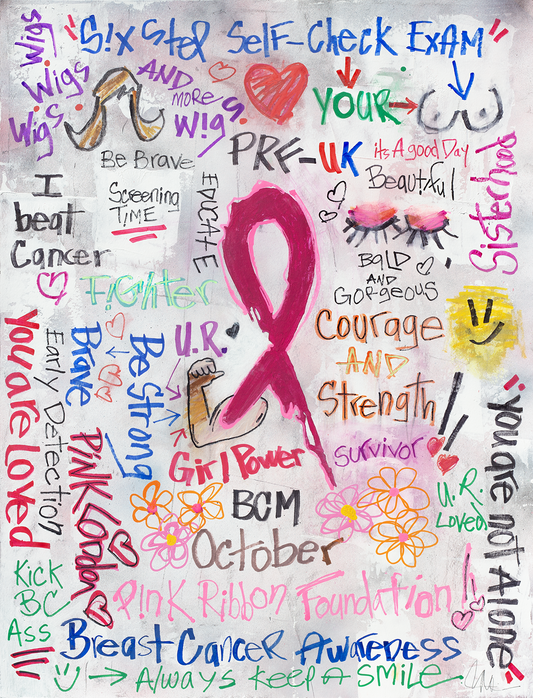 "S!x Step Self-Check Exam"
Wigs.
Wigs.
Wigs.
AND
more
W!gs.
YOUR
Be Brave
PRF-UK
its A good Day
Beautiful
Sisterhood
I
beat
Cancer
Screening
TIME
EDUCATE
BALD
AND
GORGEOUS
F!GHter
U.R.
Courage
AND
Strength!!
You are Loved!!
Early Detection
Brave
Be Strong
PiNK London
Girl Power
Survivor
U.R.
Loved
"you are not Alone"
BCM
October
Kick
BC
Ass
P!nk Ribbon Foundation!
Breast CANCER AWARENESS
Always keep A SMILE